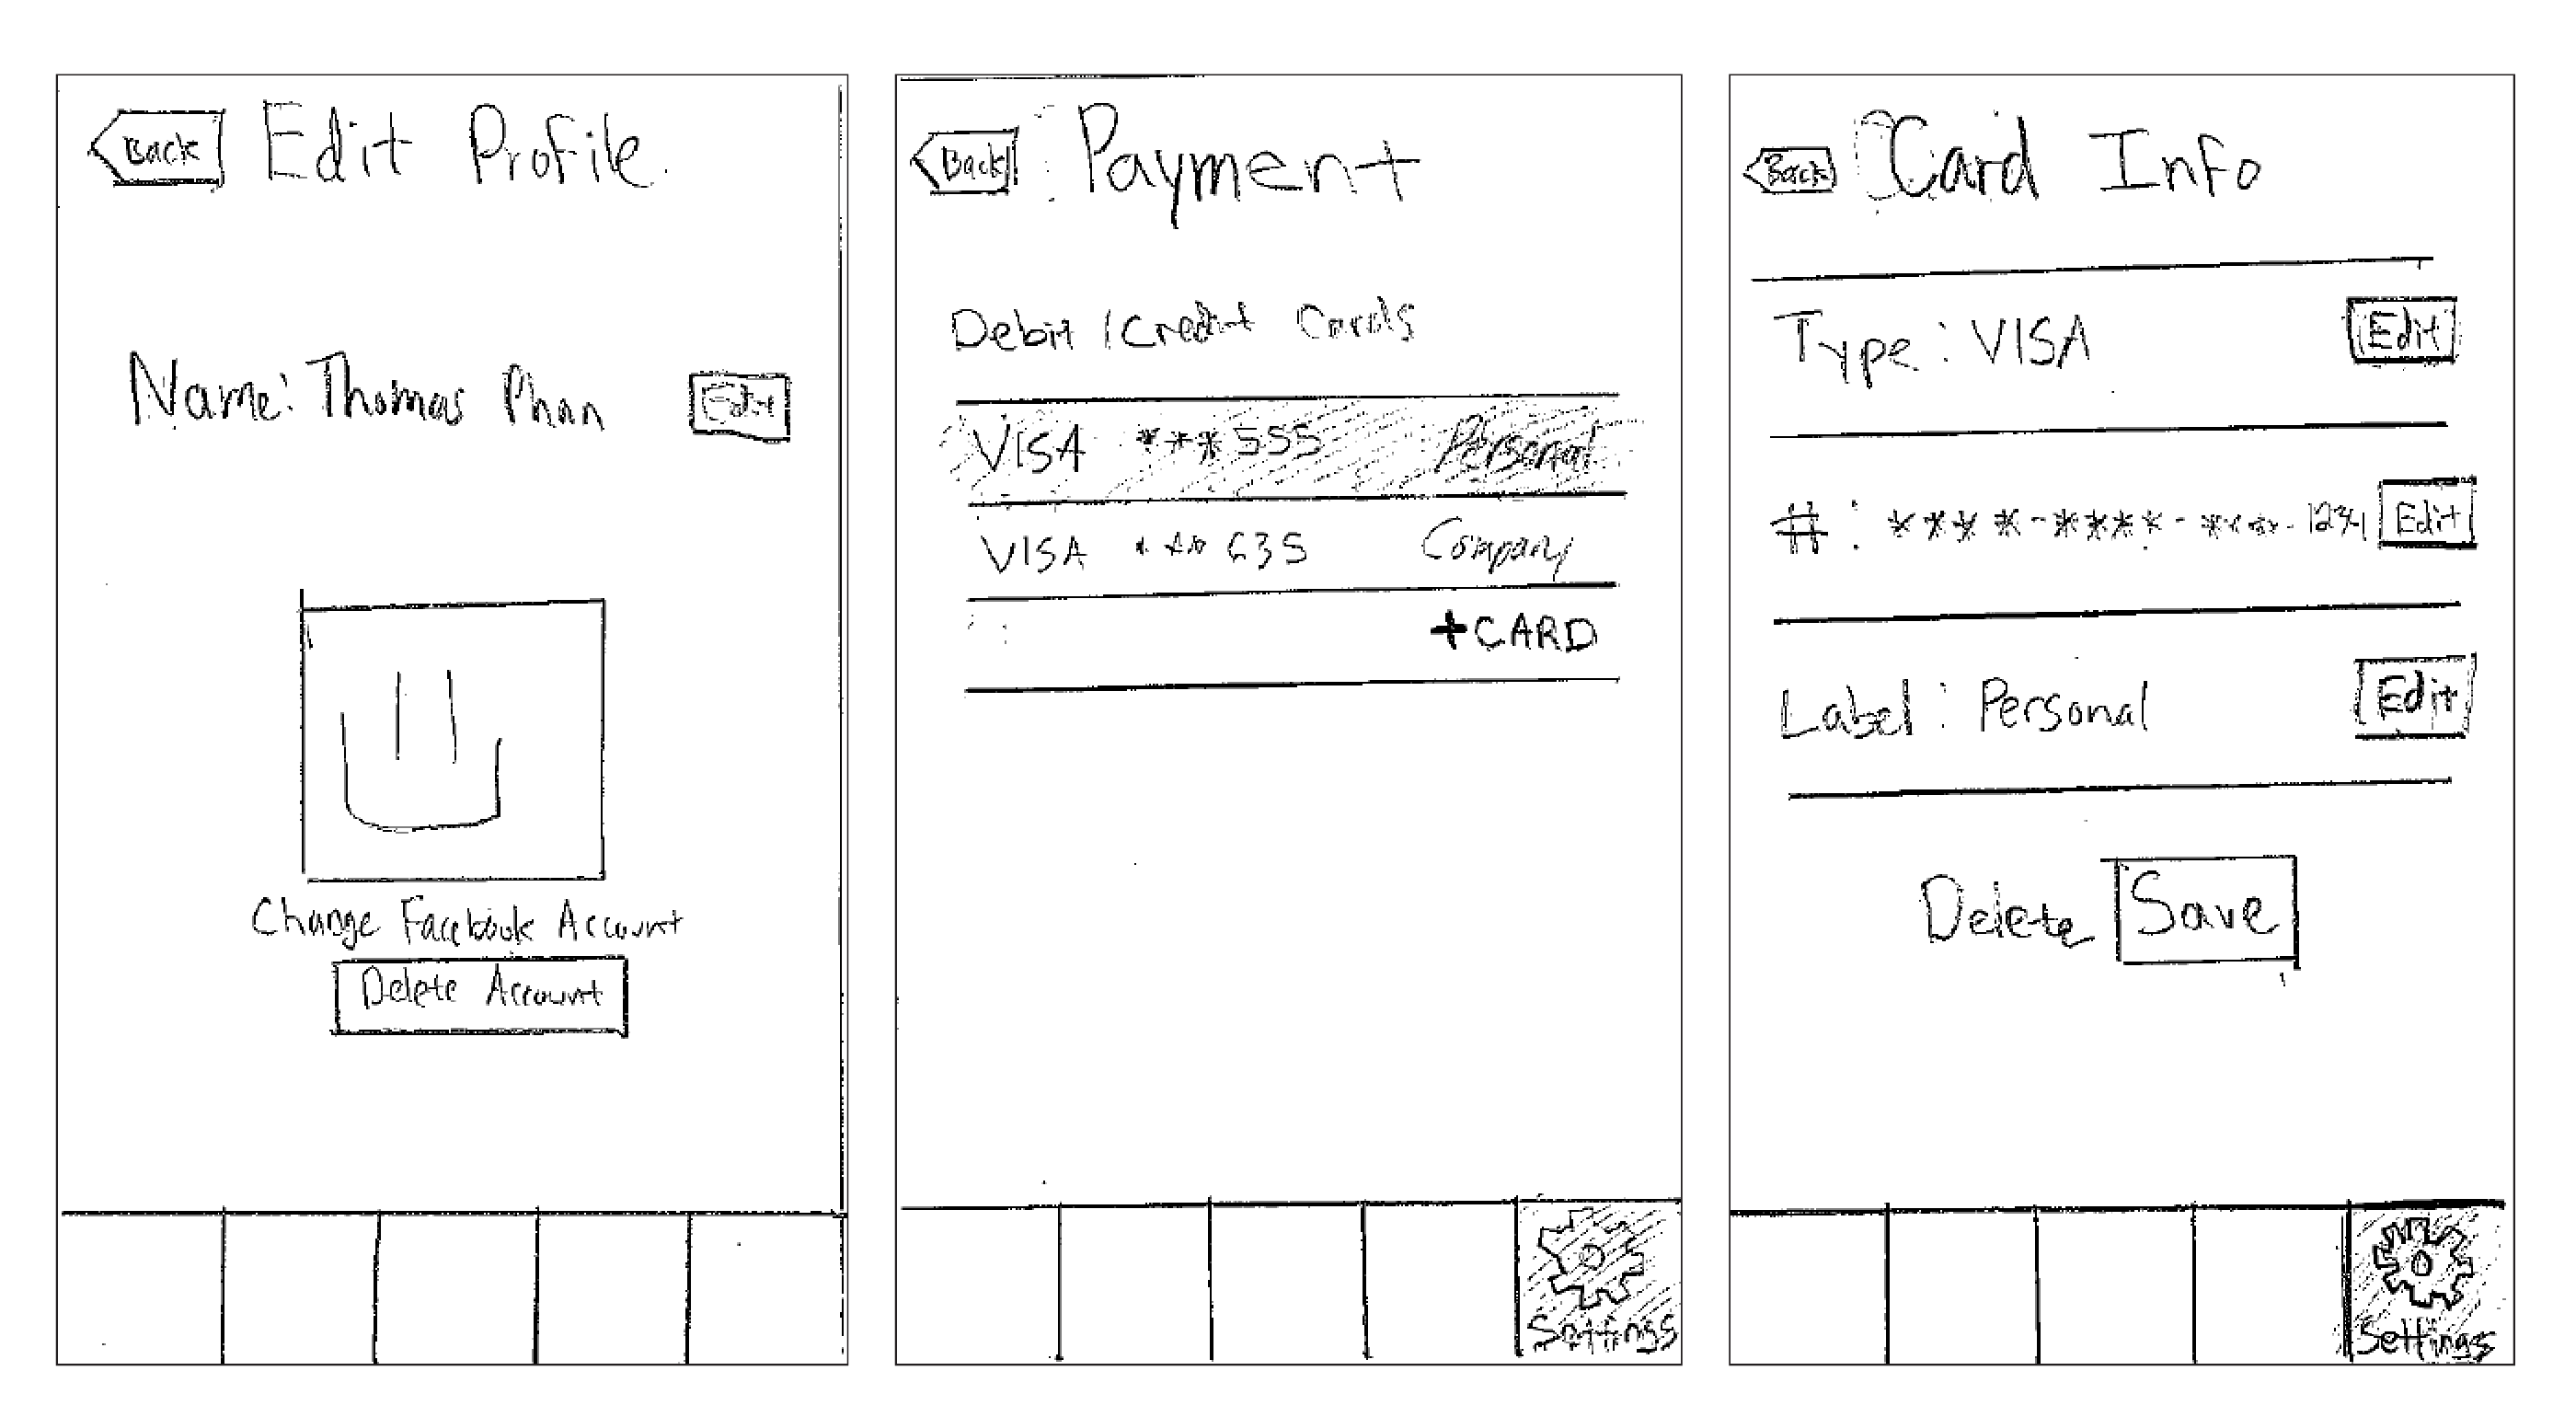 Back Edit Profile
Name: Thomas Phan Edit
Change Facebook Account
Delete Account
Back Payment
Debit / Credit Cards
VISA ***555 Personal
VISA ***635 Company
+CARD
Settings
Back Card Info
Type: VISA Edit
#: ****-****-****-1234 Edit
Label: Personal Edit
Delete Save
Settings